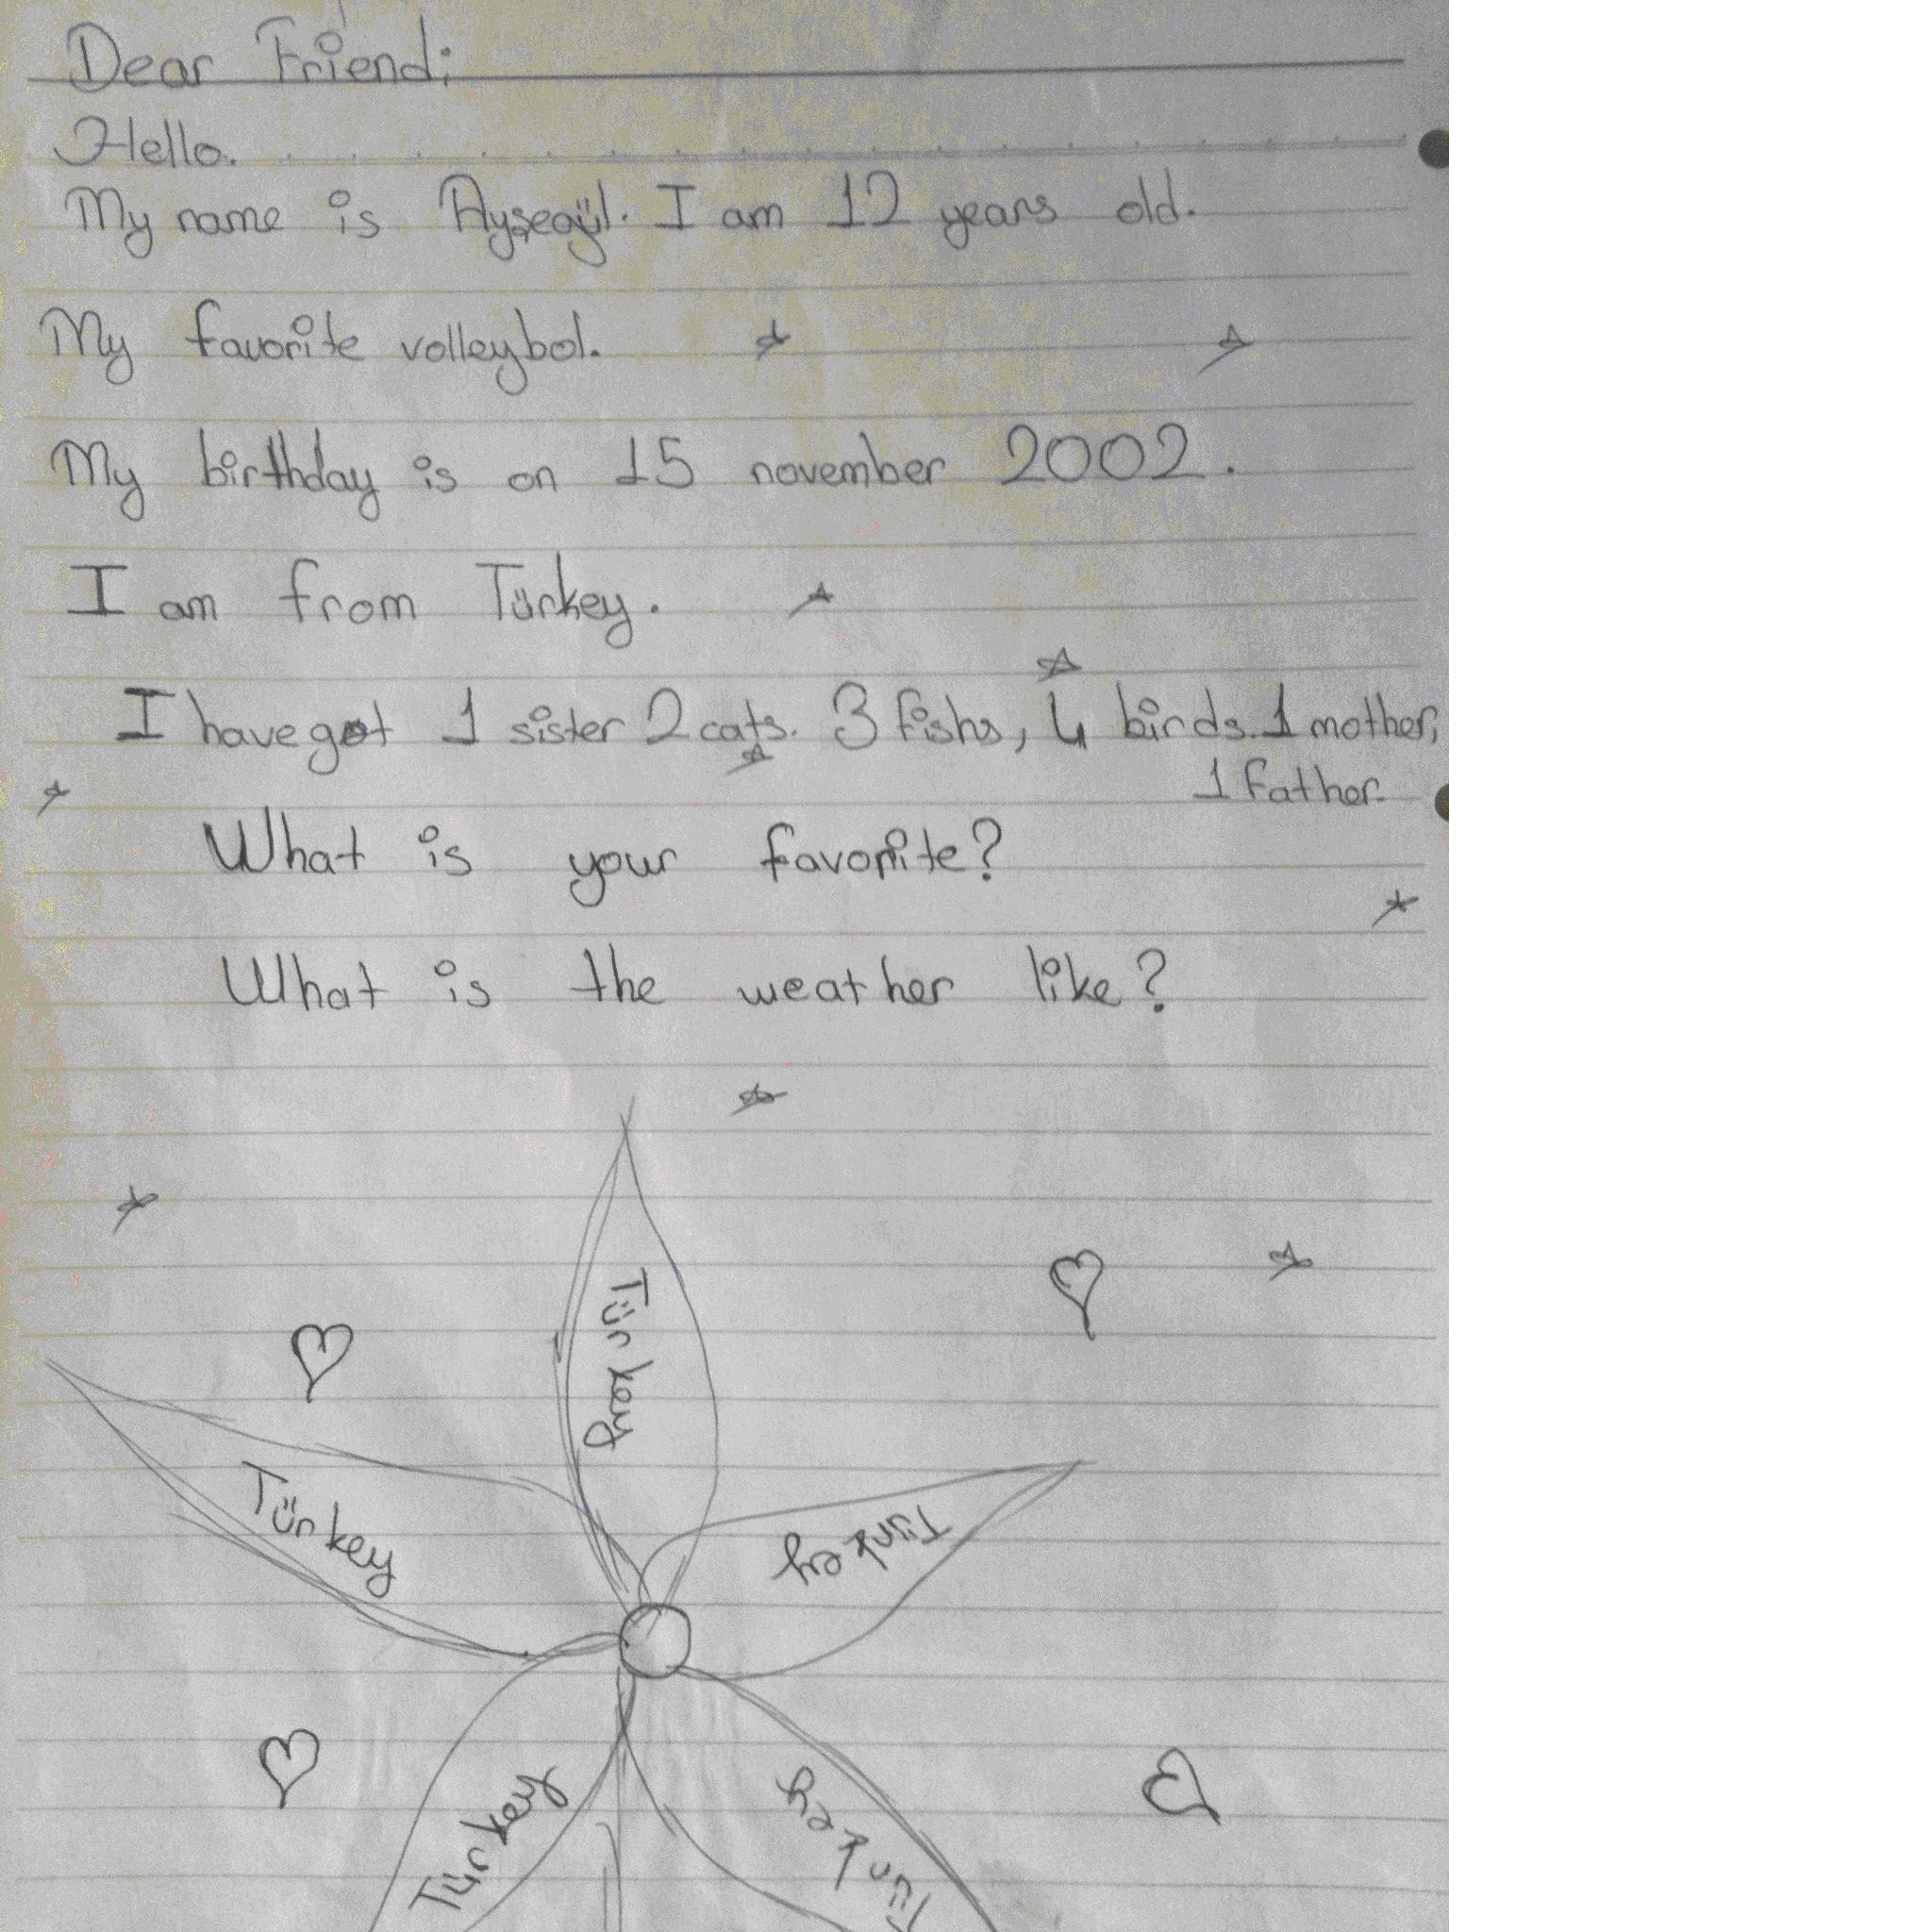 Dear Friend;
Hello.
My name is Ayşegül. I am 12 years old.
My favorite volleybol.
My birthday is on 15 november 2002.
I am from Türkey.
I have got 1 sister 2 cats. 3 fishs, 4 birds. 1 mother,
1 father.
What is your favorite?
What is the weather like?
Türkey
Türkey
Türkey
Türkey
Türkey